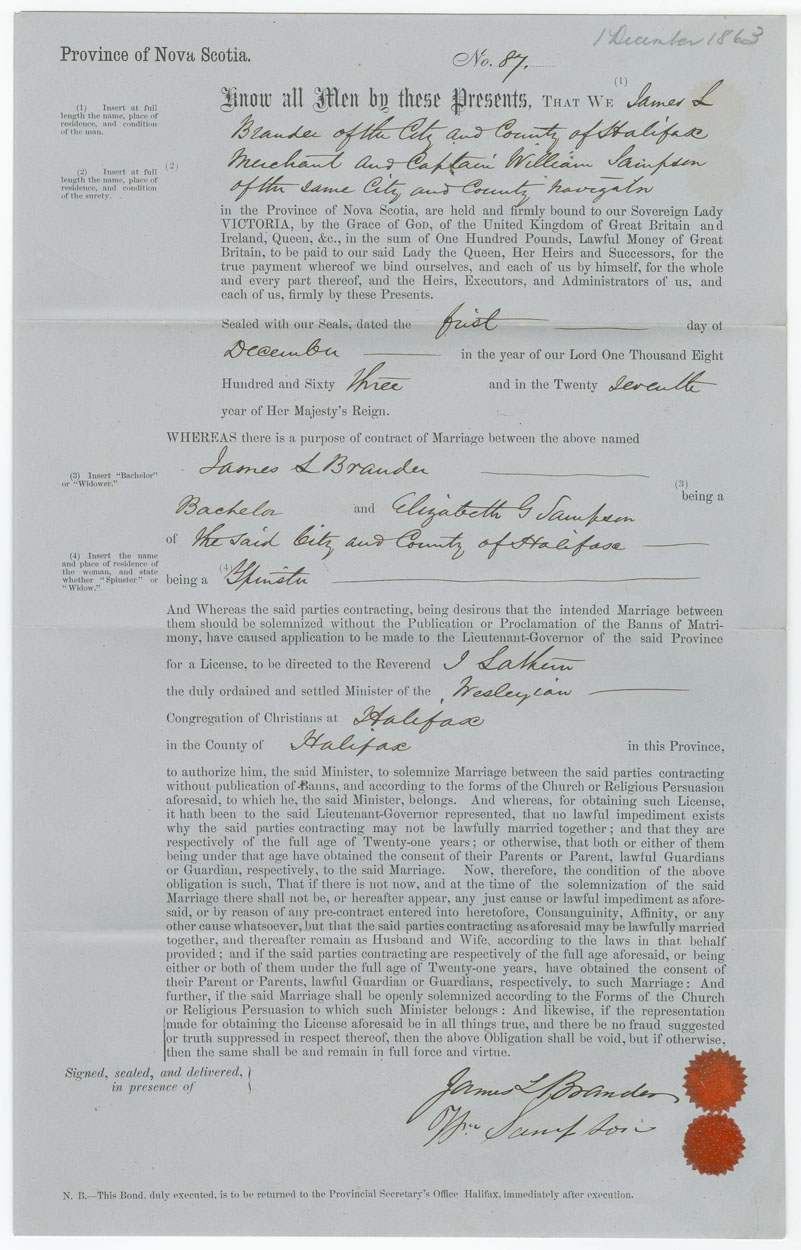 1 December 1863
Province of Nova Scotia.
No. 87.
(1)
Know all Men by these Presents, THAT WE James L
(1) Insert at full
length the name, place of
residence, and condition
of the man.
Brander of the City and County of Halifax
(2)
Merchant and Captain William Sampson
(2) Insert at full
length the name, place of
residence, and condition
of the surety.
of the same City and County Navigator
in the Province of Nova Scotia, are held and firmly bound to our Sovereign Lady
VICTORIA, by the Grace of GOD, of the United Kingdom of Great Britain and
Ireland, Queen, &c., in the sum of One Hundred Pounds, Lawful Money of Great
Britain, to be paid to our said Lady the Queen, Her Heirs and Successors, for the
true payment whereof we bind ourselves, and each of us by himself, for the whole
and every part thereof, and the Heirs, Executors, and Administrators of us, and
each of us, firmly by these Presents.
Sealed with our Seals, dated the first day of
December in the year of our Lord One Thousand Eight
Hundred and Sixty three and in the Twenty seventh
year of Her Majesty's Reign.
WHEREAS there is a purpose of contract of Marriage between the above named
James L Brander
(3) Insert "Bachelor"
or "Widower."
(3)
being a
Bachelor and Elizabeth G Sampson
of the said City and County of Halifax
(4) Insert the name
and place of residence of
the woman, and state
whether "Spinster" or
"Widow."
being a (4) Spinster
And Whereas the said parties contracting, being desirous that the intended Marriage between
them should be solemnized without the Publication or Proclamation of the Banns of Matri-
mony, have caused application to be made to the Lieutenant-Governor of the said Province
for a License, to be directed to the Reverend J Lathern
the duly ordained and settled Minister of the Wesleyian
Congregation of Christians at Halifax
in the County of Halifax in this Province,
to authorize him, the said Minister, to solemnize Marriage between the said parties contracting
without publication of Banns, and according to the forms of the Church or Religious Persuasion
aforesaid, to which he, the said Minister, belongs. And whereas, for obtaining such License,
it hath been to the said Lieutenant-Governor represented, that no lawful impediment exists
why the said parties contracting may not be lawfully married together; and that they are
respectively of the full age of Twenty-one years; or otherwise, that both or either of them
being under that age have obtained the consent of their Parents or Parent, lawful Guardians
or Guardian, respectively, to the said Marriage. Now, therefore, the condition of the above
obligation is such, That if there is not now, and at the time of the solemnization of the said
Marriage there shall not be, or hereafter appear, any just cause or lawful impediment as afore-
said, or by reason of any pre-contract entered into heretofore, Consanguinity, Affinity, or any
other cause whatsoever, but that the said parties contracting as aforesaid may be lawfully married
together, and thereafter remain as Husband and Wife, according to the laws in that behalf
provided; and if the said parties contracting are respectively of the full age aforesaid, or being
either or both of them under the full age of Twenty-one years, have obtained the consent of
their Parent or Parents, lawful Guardian or Guardians, respectively, to such Marriage: And
further, if the said Marriage shall be openly solemnized according to the Forms of the Church
or Religious Persuasion to which such Minister belongs: And likewise, if the representation
made for obtaining the License aforesaid be in all things true, and there be no fraud suggested
or truth suppressed in respect thereof, then the above Obligation shall be void, but if otherwise,
then the same shall be and remain in full force and virtue.
Signed, sealed, and delivered,
in presence of
James L Brander
Wm Sampson
N. B.—This Bond, duly executed, is to be returned to the Provincial Secretary's Office Halifax, immediately after execution.